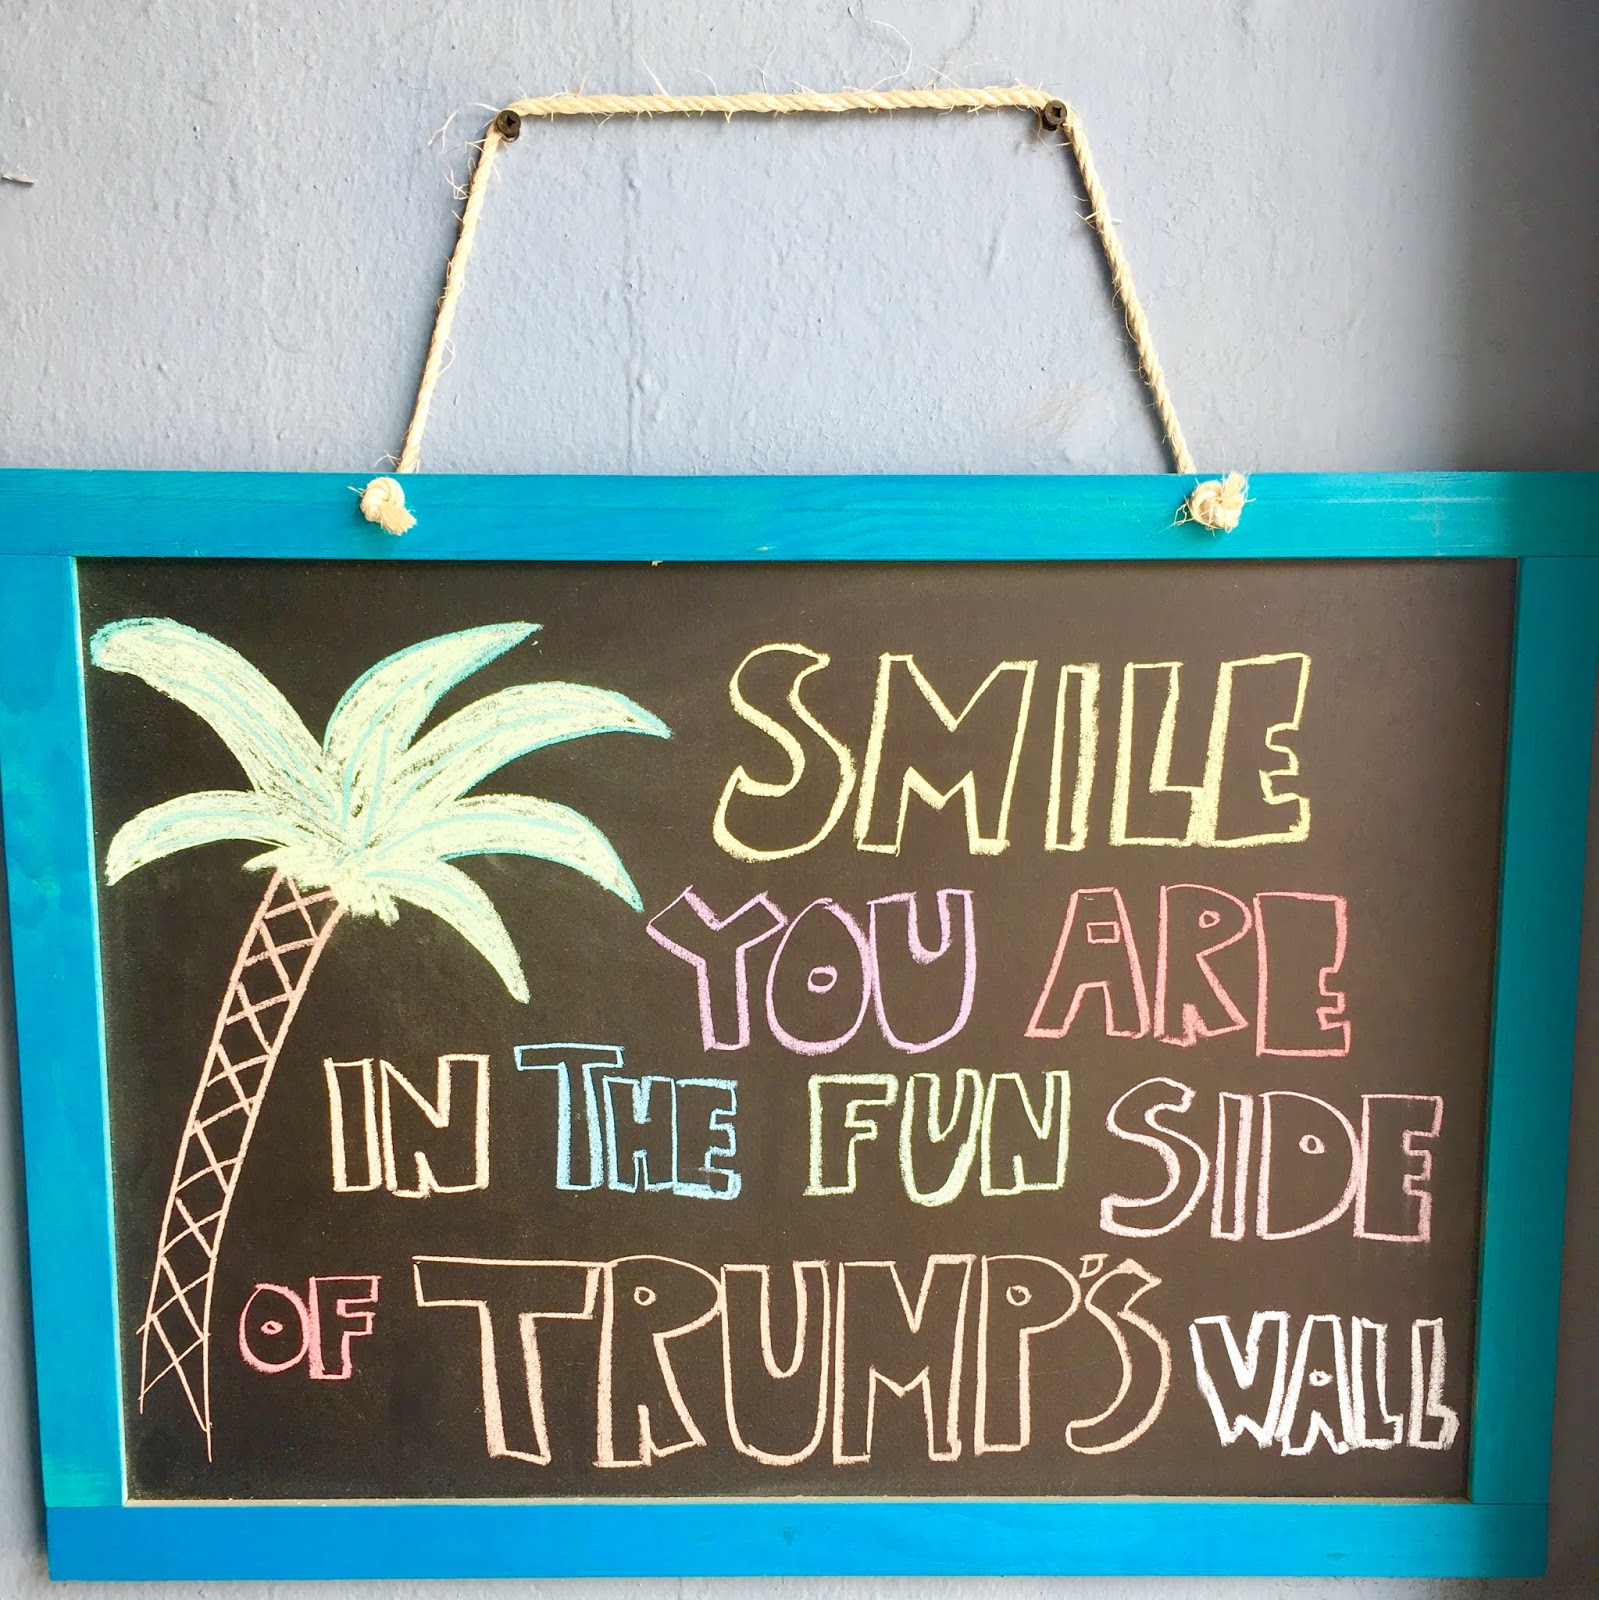 SMILE
YOU ARE
IN THE FUN SIDE
OF TRUMP'S WALL